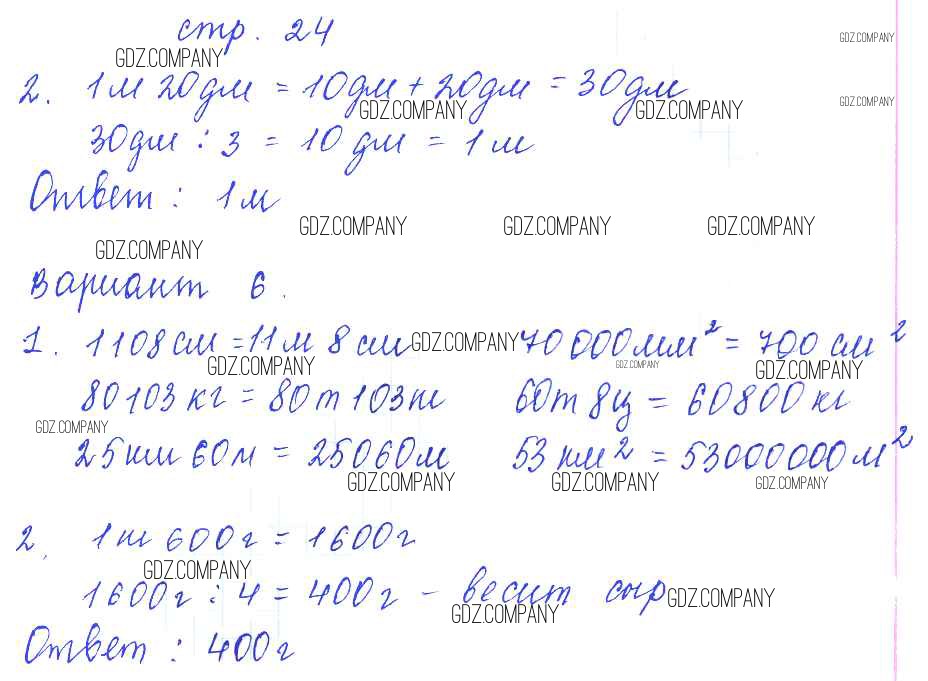 стр. 24
GDZ.COMPANY
GDZ.COMPANY
2. 1м 20дм = 10дм + 20дм = 30дм
GDZ.COMPANY GDZ.COMPANY GDZ.COMPANY
30дм : 3 = 10 дм = 1 м
Ответ : 1м
GDZ.COMPANY GDZ.COMPANY GDZ.COMPANY
GDZ.COMPANY
Вариант 6.
1. 1108см = 11м 8см GDZ.COMPANY 70000мм² = 700 см²
GDZ.COMPANY GDZ.COMPANY GDZ.COMPANY
80103 кг = 80т 103кг 60т 8ц = 60800 кг
GDZ.COMPANY
25км 60м = 25060м 53 км² = 53000000 м²
GDZ.COMPANY GDZ.COMPANY GDZ.COMPANY
2. 1кг 600г = 1600г
GDZ.COMPANY
1600г : 4 = 400г – весит сыр GDZ.COMPANY
GDZ.COMPANY
Ответ : 400г